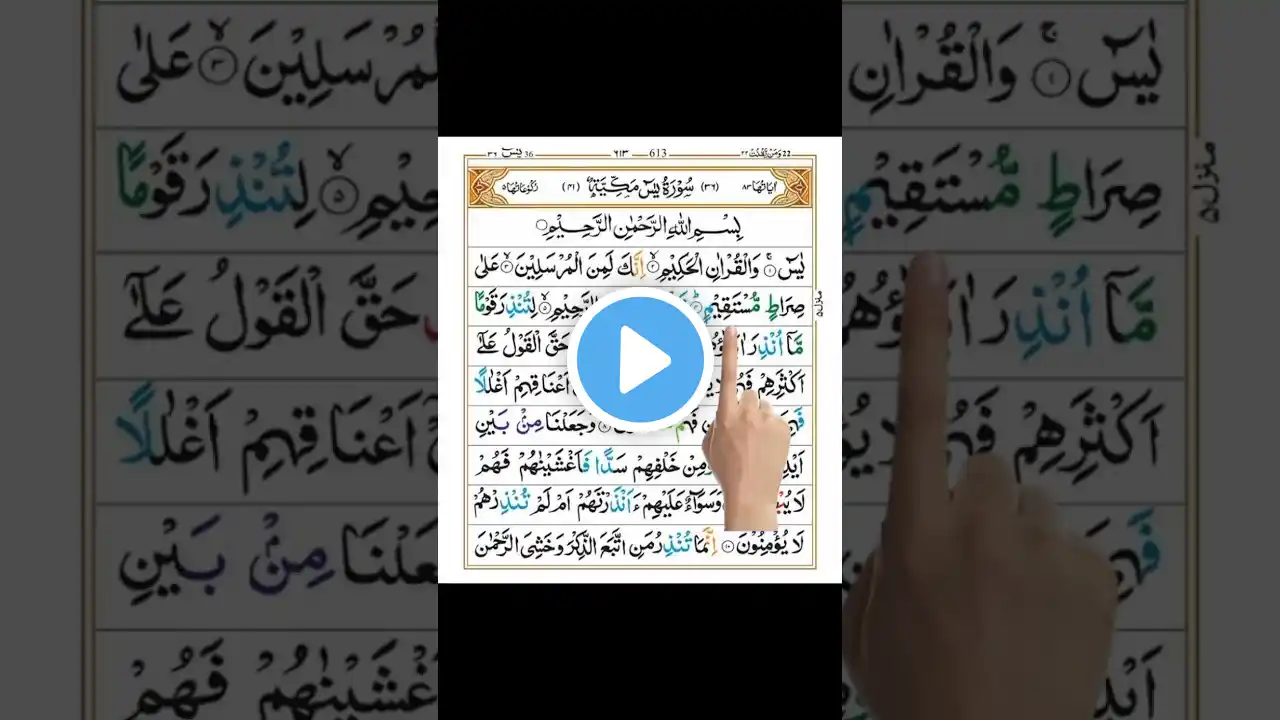 36 يٰسٓ ٣٦ — ٦١٣ — 613 — 22 وَمَنْ يَّقْنُتْ ٢٢
اٰيَاتُهَا ٨٣ (٣٦) سُوْرَةُ يٰسٓ مَكِّيَّةٌ (٤١) رُكُوْعَاتُهَا ٥
بِسْمِ اللّٰهِ الرَّحْمٰنِ الرَّحِيْمِ
يٰسٓ ۚ ١ وَالْقُرْاٰنِ الْحَكِيْمِ ۙ ٢ اِنَّكَ لَمِنَ الْمُرْسَلِيْنَ ۙ ٣ عَلٰى
صِرَاطٍ مُّسْتَقِيْمٍ الرَّحِيْمِ ۙ ٥ لِتُنْذِرَ قَوْمًا
مَّاۤ اُنْذِرَ اٰبَآؤُهُمْ حَقَّ الْقَوْلُ عَلٰٓى
اَكْثَرِهِمْ فَهُمْ لَا اَعْنَاقِهِمْ اَغْلٰلًا
فَهِيَ فَهُمْ ٨ وَجَعَلْنَا مِنْۢ بَيْنِ
وَّمِنْ خَلْفِهِمْ سَدًّا فَاَغْشَيْنٰهُمْ فَهُمْ
لَا وَسَوَآءٌ عَلَيْهِمْ ءَاَنْذَرْتَهُمْ اَمْ لَمْ تُنْذِرْهُمْ
لَا يُؤْمِنُوْنَ ١٠ اِنَّمَا تُنْذِرُ مَنِ اتَّبَعَ الذِّكْرَ وَخَشِيَ الرَّحْمٰنَ
منزل ٥